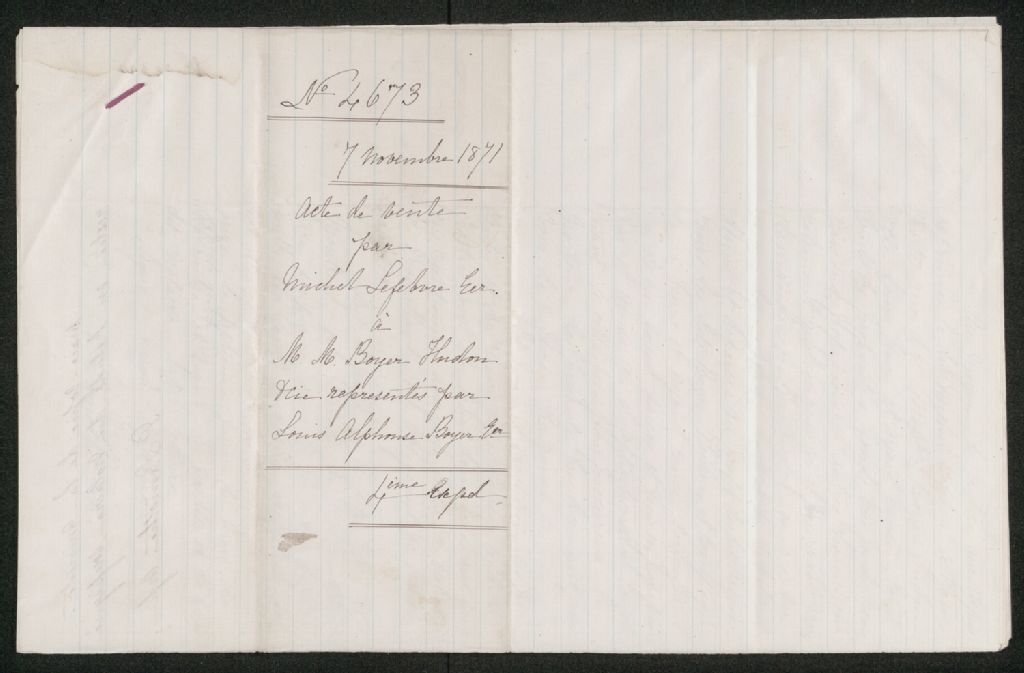 No 4673
7 Novembre 1871
Acte de vente
par
Michel Lefebvre Ecr.
à
M M. Boyer Hudon
&Cie représentés par
Louis Alphonse Boyer Ecr
4ème Expd.